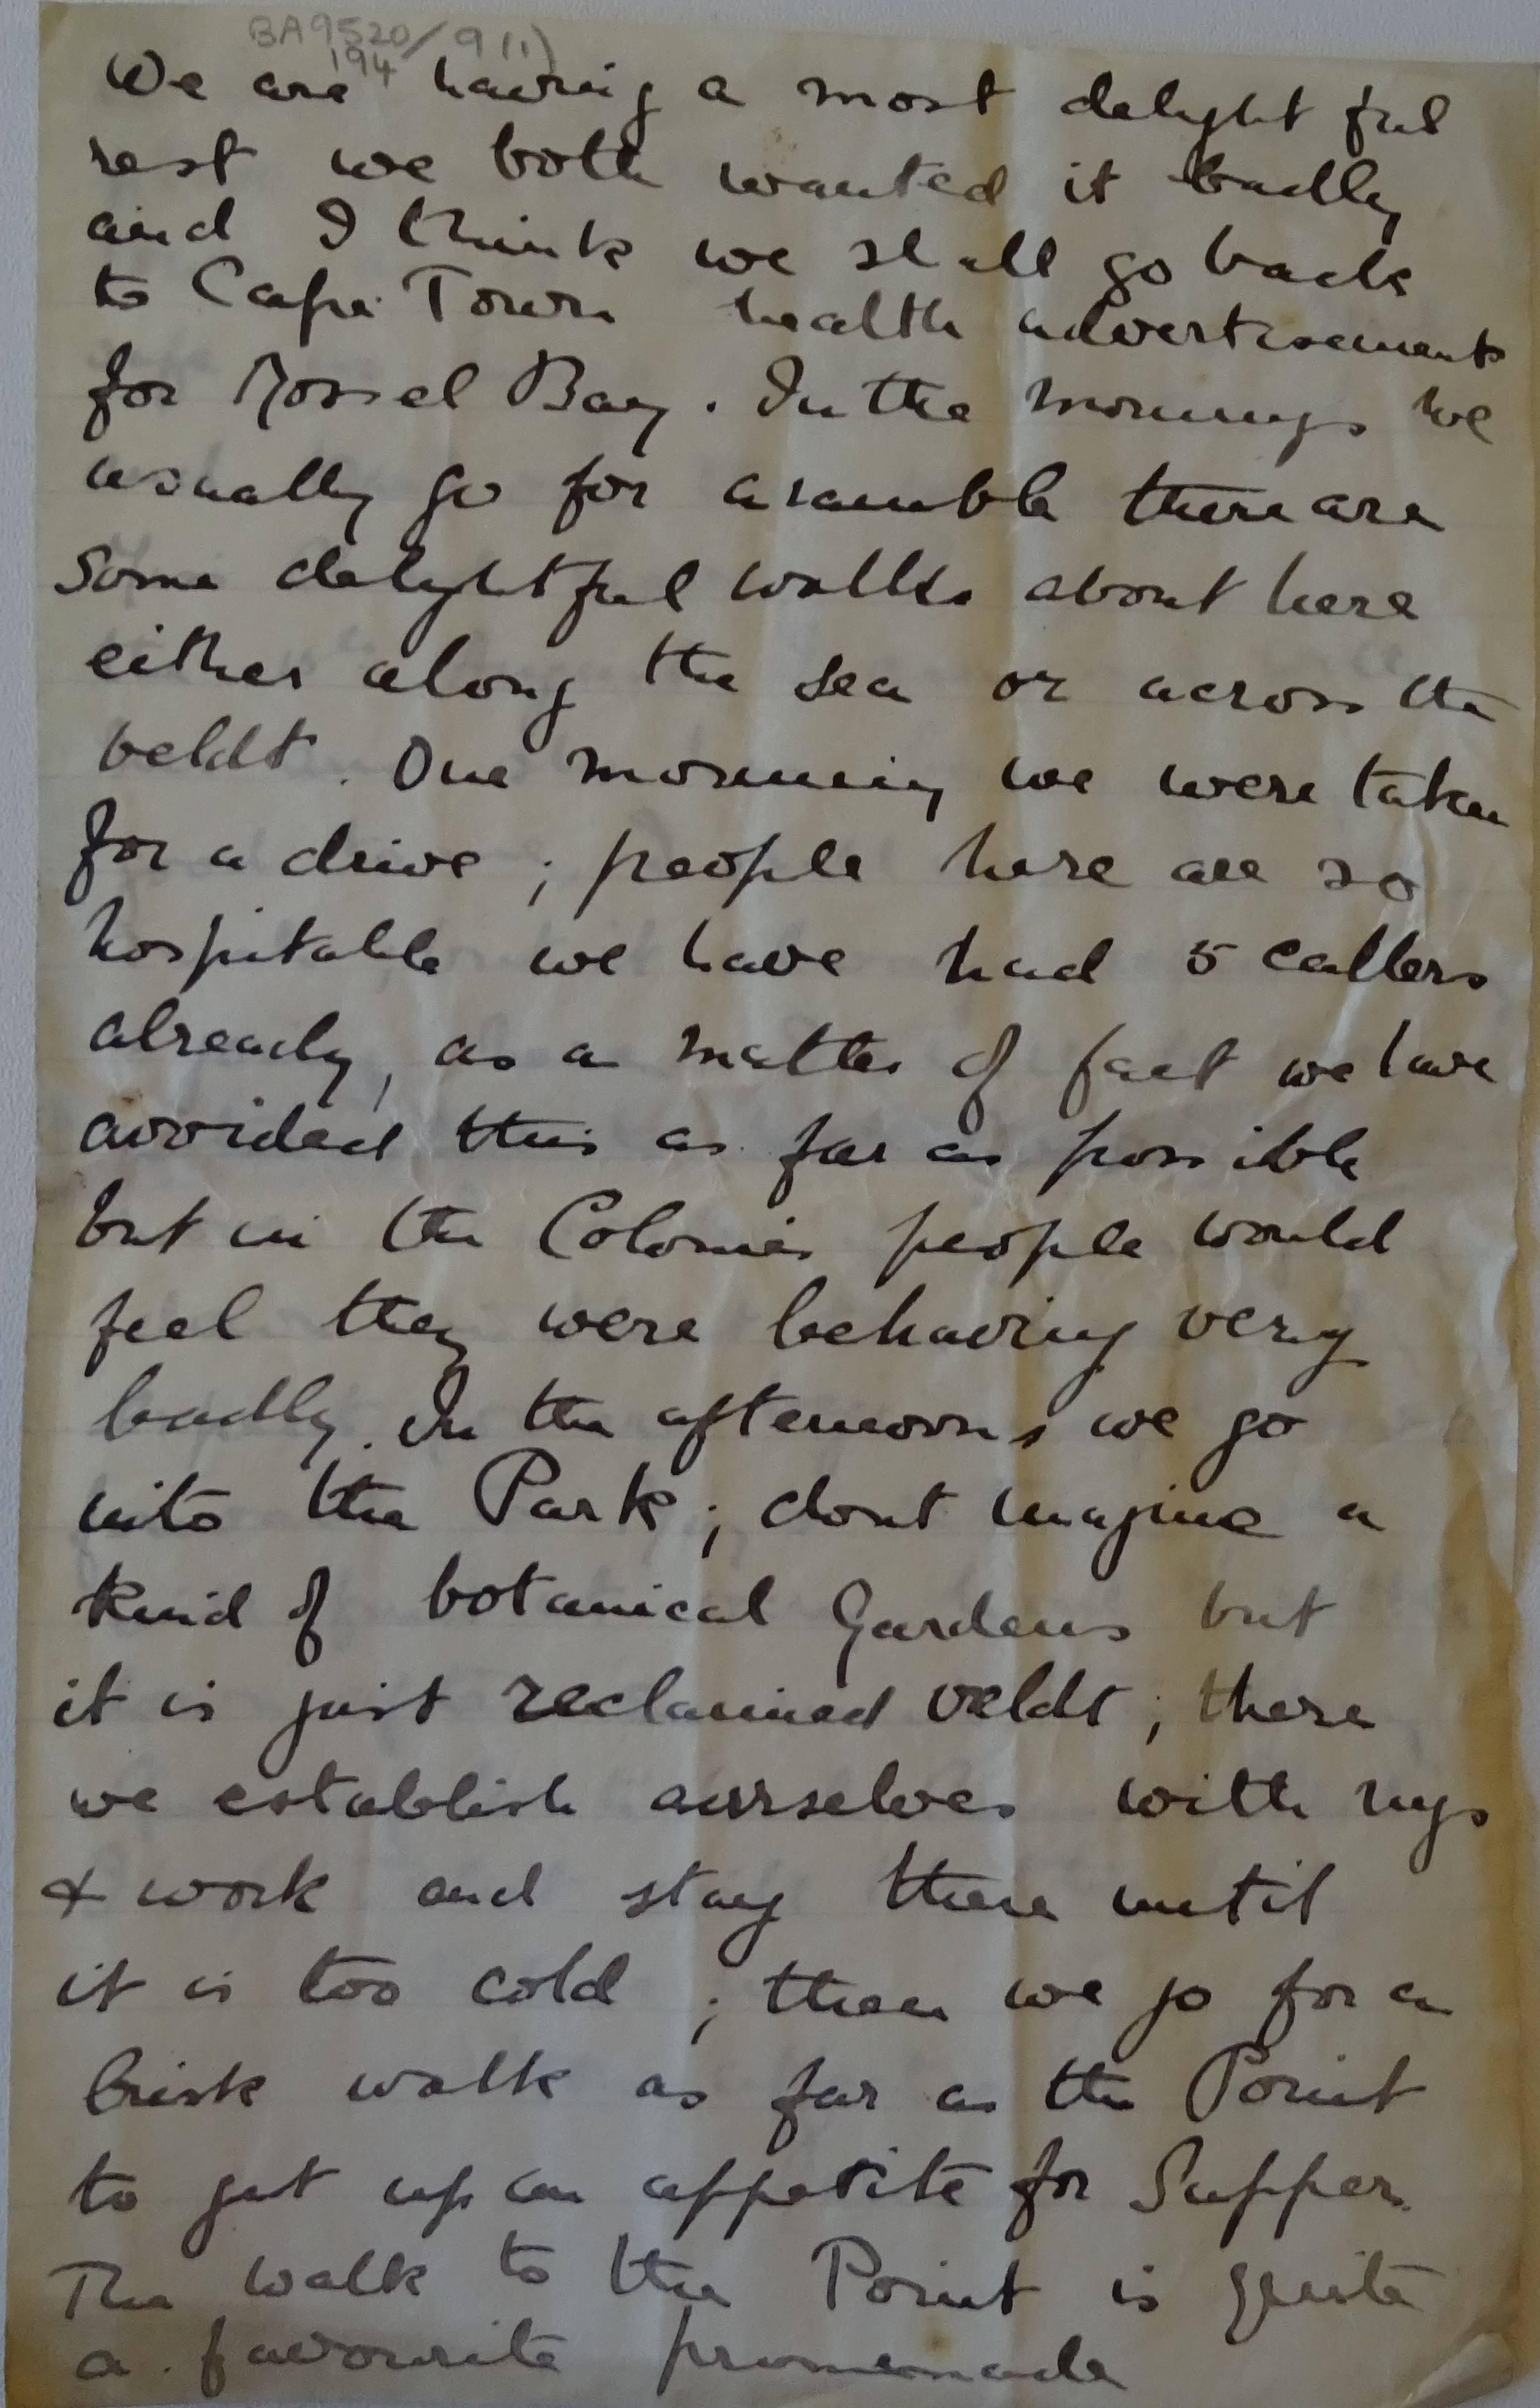 BA9520/9(1)
194
We are having a most delightful
rest we both wanted it badly
and I think we shall go back
to Cape Town health advertisements
for Mossel Bay. In the mornings we
usually go for a ramble there are
Some delightful walks about here
either along the sea or across the
veldt. One morning we were taken
for a drive; people here are so
hospitable we have had 5 callers
already, as a matter of fact we have
avoided this as far as possible
but in the Colonies people would
feel they were behaving very
badly. In the afternoons we go
into the Park; dont imagine a
kind of botanical Gardens but
it is just reclaimed veldt; there
we establish ourselves with rugs
& work and stay there until
it is too cold; then we go for a
brisk walk as far as the Point
to get up an appetite for Supper.
The walk to the Point is quite
a favourite promenade